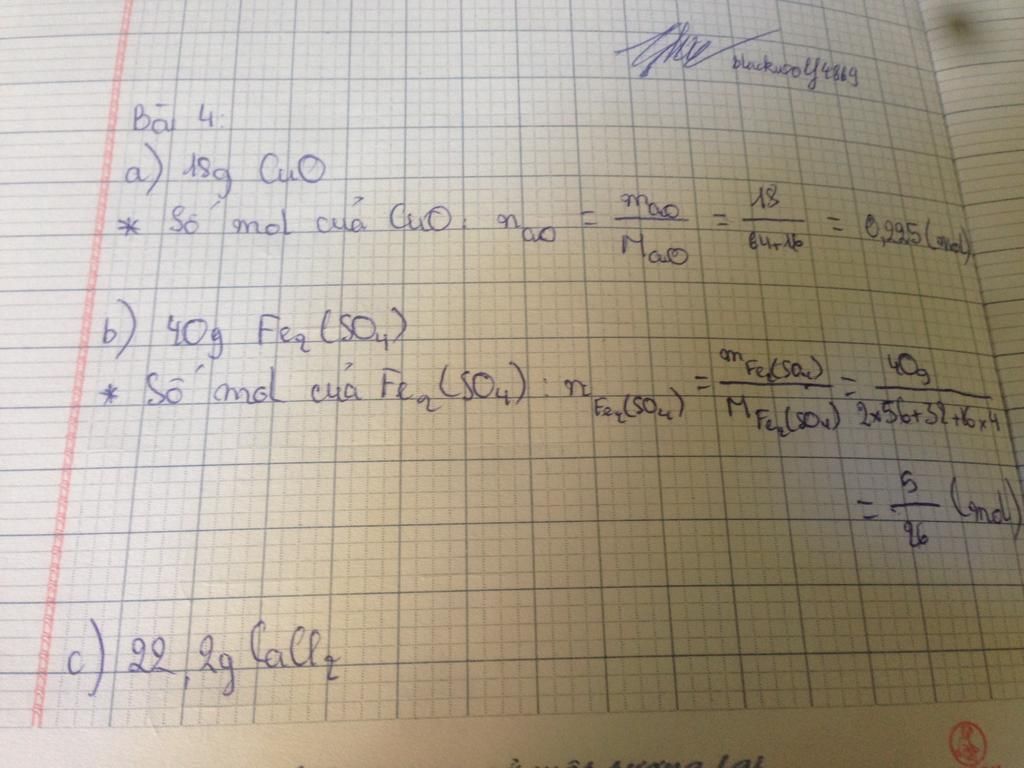 blackwolf4869
Bài 4:
a) 18g CuO
* Số mol của CuO: nCuO = mCuO / MCuO = 18 / 64+16 = 0,225 (mol)
b) 40g Fe2(SO4)
* Số mol của Fe2(SO4): nFe2(SO4) = mFe2(SO4) / MFe2(SO4) = 40g / 2×56+32+16×4
= 5/26 (mol)
c) 22,2g CaCl2